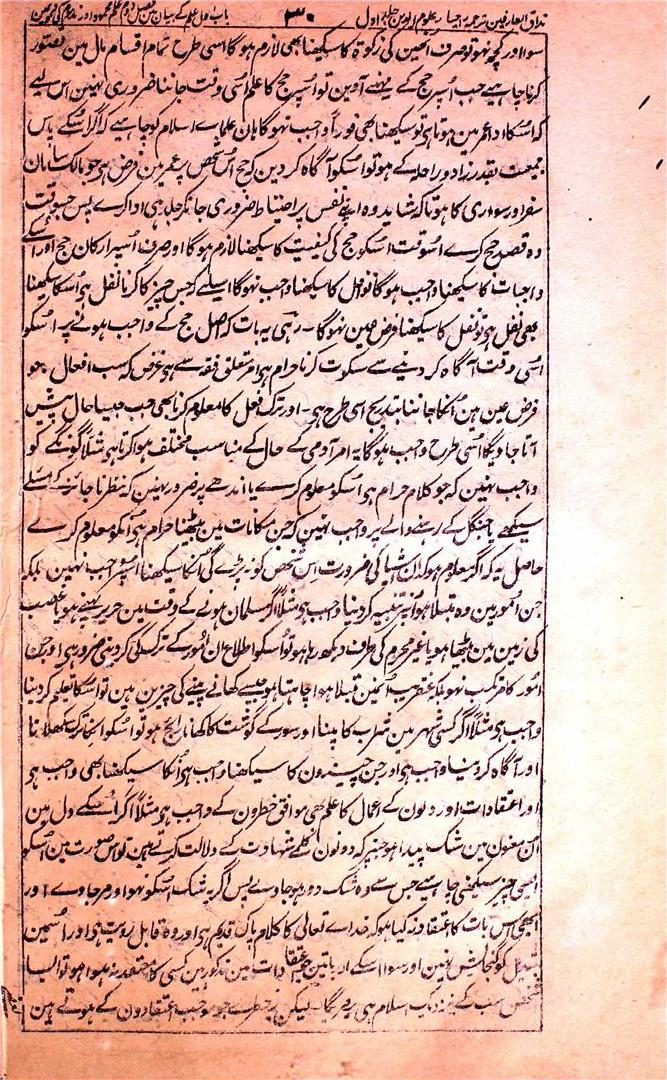 مذاق العارفین ترجمہ احیاء علوم الدین جلد اول ۳۰ باب اول علم کے بیان مین فصل دوم علم محمود اور مذموم
سوا اور کچھ نہو تو صرف انھین کی زکوۃ کا سیکھنا بھی لازم ہوگا اسی طرح تمام اقسام مال مین تصور
کرنا چاہیے جب اُسپر حج کے مہینے آوین تو اُسپر حج کا علم اُسی وقت جاننا ضروری نہین اس لیے
کہ اُسکا ادا عمر مین ہوتا ہی تو سیکھنا بھی فوراً واجب نہوگا ہان علماے اسلام کو چاہیے کہ اگر اُسکے پاس
جمعیت بقدر زاد و راحلہ کے ہو تو اُسکو آگاہ کر دین کہ حج اُس شخص پر عمر مین فرض ہی جو مالک سامان
سفر اور سواری کا ہو تاکہ شاید وہ اپنے نفس پر احتیاط ضروری جانکر جلد ہی ادا کرے پس جسوقت
وہ قصد حج کرے اُسوقت اُسکو حج کی کیفیت کا سیکھنا لازم ہوگا اور صرف اُسپر ارکان حج اور اُسکے
واجبات کا سیکھنا واجب ہوگا نوافل کا سیکھنا واجب نہوگا اسلیے کہ جس چیز کا کرنا نفل ہی اُسکا سیکھنا
بھی نفل ہی تو نفل کا سیکھنا فرض عین نہوگا ۔ رہی یہ بات کہ اصل حج کے واجب ہونے پر اُسکو
اُسی وقت آگاہ کر دینے سے سکوت کرنا حرام ہی امر متعلق فقہ سے ہی غرض کہ سب افعال جو
فرض عین ہین اُنکا جاننا بتدریج اسی طرح ہی ۔ اور ترک فعل کا معلوم کرنا بھی جب جیسا حال پیش
آتا جاویگا اُسی طرح واجب ہوگا یہ امر آدمی کے حال کے مناسب مختلف ہوا کرتا ہی مثلاً گونگے کو
واجب نہین کہ جو کلام حرام ہی اُسکو معلوم کرے یا اندھے پر ضرور نہین کہ نظر ناجائز کے مسئلے
سیکھے یا جنگل کے رہنے والے پر واجب نہین کہ جن مکانات مین بیٹھنا حرام ہی اُنکو معلوم کرے
حاصل یہ کہ اگر معلوم ہو کہ ان اشیا کی ضرورت اس شخص کو نہ پڑے گی اُنکا سیکھنا اُسپر واجب نہین بلکہ
جن اُمور مین وہ مبتلا ہو اُنپر تنبیہ کر دینا واجب ہی مثلاً اگر مسلمان ہونے کے وقت مین حریر پہنے ہو یا غصب
کی زمین مین بیٹھا ہو یا غیر محرم کی طرف دیکھ رہا ہو تو اُسکو اطلاع ان اُمور کے ترک کی کر دینی ضرور ہی اور جن
امور کا مرتکب نہو بلکہ عنقریب اُنمین مبتلا ہوا چاہتا ہو جیسے کھانے پینے کی چیزین ہین تو اُسکا تعلیم کر دینا
واجب ہی مثلاً اگر کسی شہر مین شراب کا پینا اور سور کے گوشت کا کھانا رائج ہو تو اُسکو انکا ترک سکھلانا
اور آگاہ کر دینا واجب ہی اور جن چیزون کا سیکھنا واجب ہی اُنکا سکھلانا بھی واجب ہی
اور اعتقادات اور دلون کے اعمال کا علم بھی موافق خطرون کے واجب ہی مثلاً اگر اُسکے دل مین
اُن معنون مین شک پیدا ہو جنپر کہ دونون کلمے شہادت کے دلالت کرتے ہین تو اس صورت مین اُسکو
ایسی چیز سیکھنی چاہیے جس سے وہ شک دور ہو جاوے پس اگر یہ شک اُسکو نہوا اور مر جاوے اور
ابھی اس بات کا اعتقاد نہ کیا ہو کہ خداے تعالی کا کلام پاک قدیم ہی اور وہ قابل رویت ہی اور اُسمین
تبدیل کو گنجائش نہین اور سوا اسکے اور باتین جو اعتقادات مین مذکور ہین کسی کا معتقد نہوا ہو تو ایسا
شخص سب کے نزدیک اسلام ہی پر مریگا لیکن یہ خطرے جو موجب اعتقادون کے ہوتے ہین